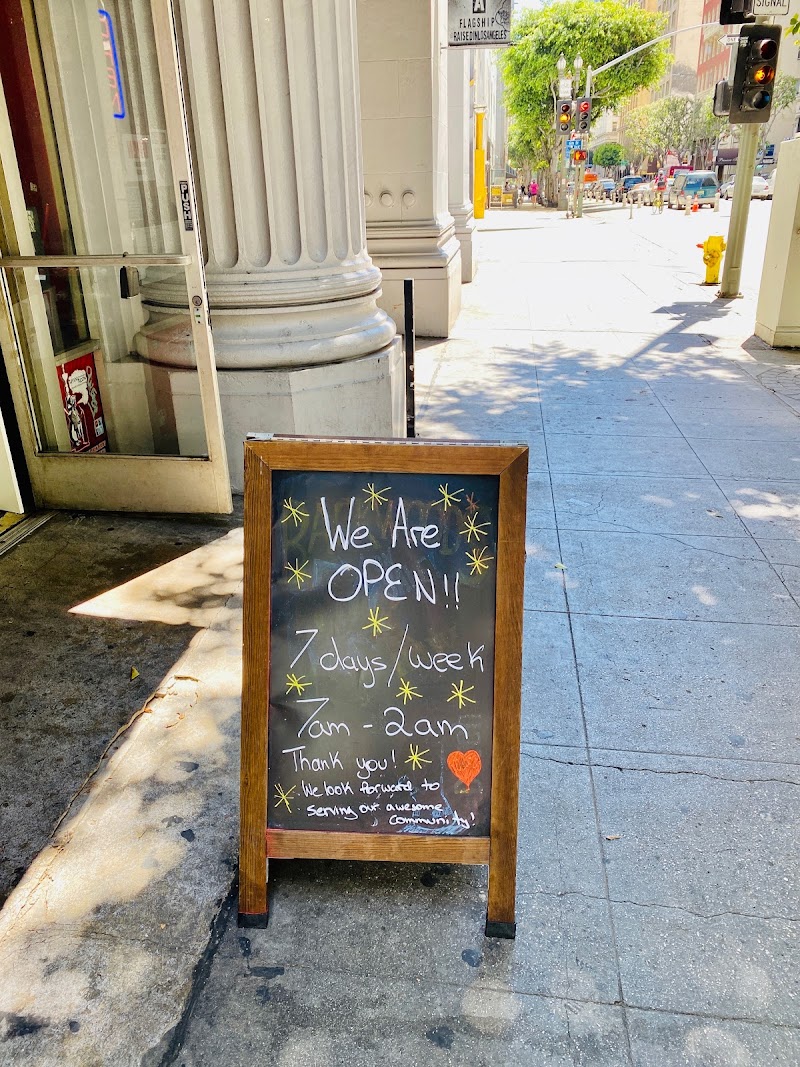 A
FLAGSHIP
RAISEDINLOSANGELES
SIGNAL
PUSH
We Are
OPEN!!
7 days/week
7am - 2am
Thank you!
We look forward to
serving our awesome
community!